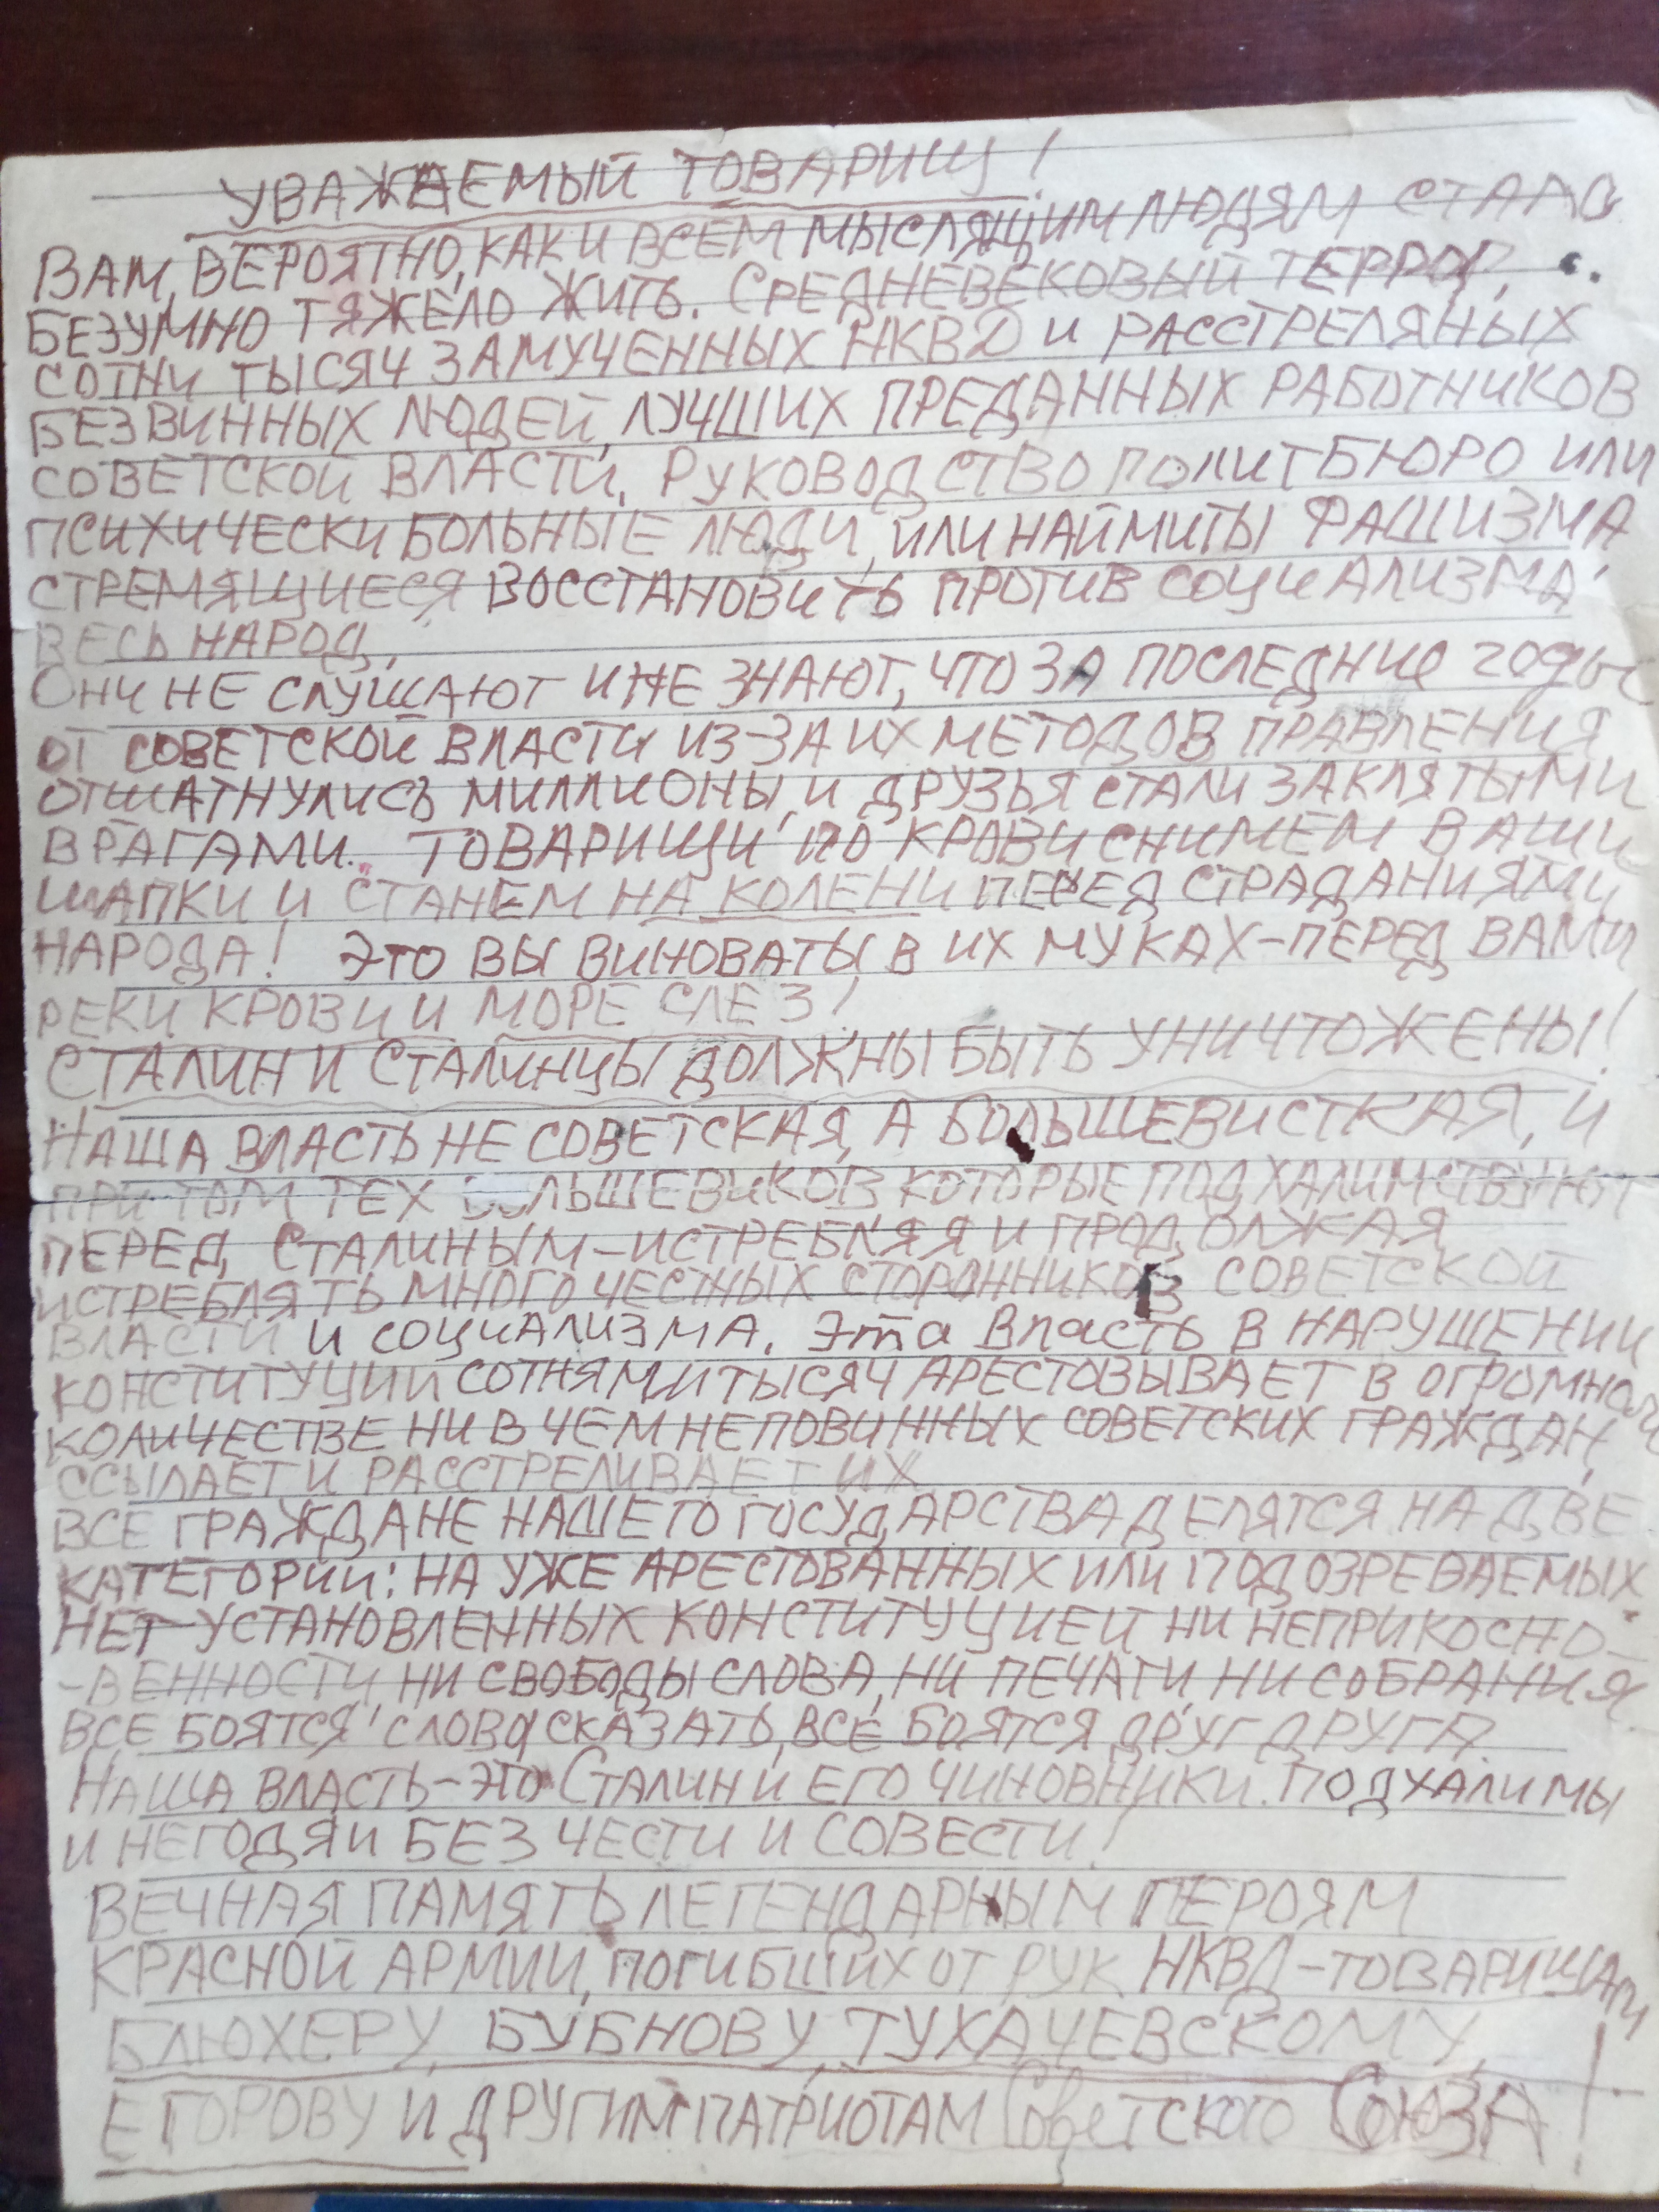 УВАЖАЕМЫЙ ТОВАРИЩ!
ВАМ, ВЕРОЯТНО, КАК И ВСЕМ МЫСЛЯЩИМ ЛЮДЯМ СТАЛО
БЕЗУМНО ТЯЖЕЛО ЖИТЬ. СРЕДНЕВЕКОВЫЙ ТЕРРОР,
СОТНИ ТЫСЯЧ ЗАМУЧЕННЫХ НКВД И РАССТРЕЛЯНЫХ
БЕЗВИННЫХ ЛЮДЕЙ, ЛУЧШИХ ПРЕДАННЫХ РАБОТНИКОВ
СОВЕТСКОЙ ВЛАСТИ. РУКОВОДСТВО ПОЛИТБЮРО ИЛИ
ПСИХИЧЕСКИ БОЛЬНЫЕ ЛЮДИ, ИЛИ НАЙМИТЫ ФАШИЗМА,
СТРЕМЯЩИЕСЯ ВОССТАНОВИТЬ ПРОТИВ СОЦИАЛИЗМА
ВЕСЬ НАРОД.
ОНИ НЕ СЛУШАЮТ И НЕ ЗНАЮТ, ЧТО ЗА ПОСЛЕДНИЕ ГОДЫ
ОТ СОВЕТСКОЙ ВЛАСТИ ИЗ-ЗА ИХ МЕТОДОВ ПРАВЛЕНИЯ
ОТШАТНУЛИСЬ МИЛЛИОНЫ, И ДРУЗЬЯ СТАЛИ ЗАКЛЯТЫМИ
ВРАГАМИ. ТОВАРИЩИ ПО КРОВИ СНИМЕМ ВАШИ
ШАПКИ И СТАНЕМ НА КОЛЕНИ ПЕРЕД СТРАДАНИЯМИ
НАРОДА! ЭТО ВЫ ВИНОВАТЫ В ИХ МУКАХ-ПЕРЕД ВАМИ
РЕКИ КРОВИ И МОРЕ СЛЕЗ!
СТАЛИН И СТАЛИНЦЫ ДОЛЖНЫ БЫТЬ УНИЧТОЖЕНЫ!
НАША ВЛАСТЬ НЕ СОВЕТСКАЯ, А БОЛЬШЕВИСТКАЯ, И
ПРИ ТОМ ТЕХ БОЛЬШЕВИКОВ КОТОРЫЕ ПОДХАЛИМСТВУЮТ
ПЕРЕД СТАЛИНЫМ-ИСТРЕБЛЯЯ И ПРОДОЛЖАЯ
ИСТРЕБЛЯТЬ МНОГО ЧЕСТНЫХ СТОРОННИКОВ СОВЕТСКОЙ
ВЛАСТИ И СОЦИАЛИЗМА. Эта Власть В НАРУШЕНИИ
КОНСТИТУЦИИ СОТНЯМИ ТЫСЯЧ АРЕСТОВЫВАЕТ В ОГРОМНОМ
КОЛИЧЕСТВЕ НИ В ЧЕМ НЕПОВИННЫХ СОВЕТСКИХ ГРАЖДАН,
ССЫЛАЕТ И РАССТРЕЛИВАЕТ ИХ
ВСЕ ГРАЖДАНЕ НАШЕГО ГОСУДАРСТВА ДЕЛЯТСЯ НА ДВЕ
КАТЕГОРИИ: НА УЖЕ АРЕСТОВАННЫХ ИЛИ ПОДОЗРЕВАЕМЫХ.
НЕТ УСТАНОВЛЕННЫХ КОНСТИТУЦИЕЙ НИ НЕПРИКОСНО-
-ВЕННОСТИ НИ СВОБОДЫ СЛОВА, НИ ПЕЧАТИ, НИ СОБРАНИЯ.
ВСЕ БОЯТСЯ СЛОВА СКАЗАТЬ, ВСЕ БОЯТСЯ ДРУГ ДРУГА.
НАША ВЛАСТЬ-ЭТО СТАЛИН И ЕГО ЧИНОВНИКИ. ПОДХАЛИМЫ
И НЕГОДЯИ БЕЗ ЧЕСТИ И СОВЕСТИ!
ВЕЧНАЯ ПАМЯТЬ ЛЕГЕНДАРНЫМ ГЕРОЯМ
КРАСНОЙ АРМИИ, ПОГИБШИХ ОТ РУК НКВД-ТОВАРИЩАМ
БЛЮХЕРУ, БУБНОВУ, ТУХАЧЕВСКОМУ,
ЕГОРОВУ И ДРУГИМ ПАТРИОТАМ Советского СОЮЗА!